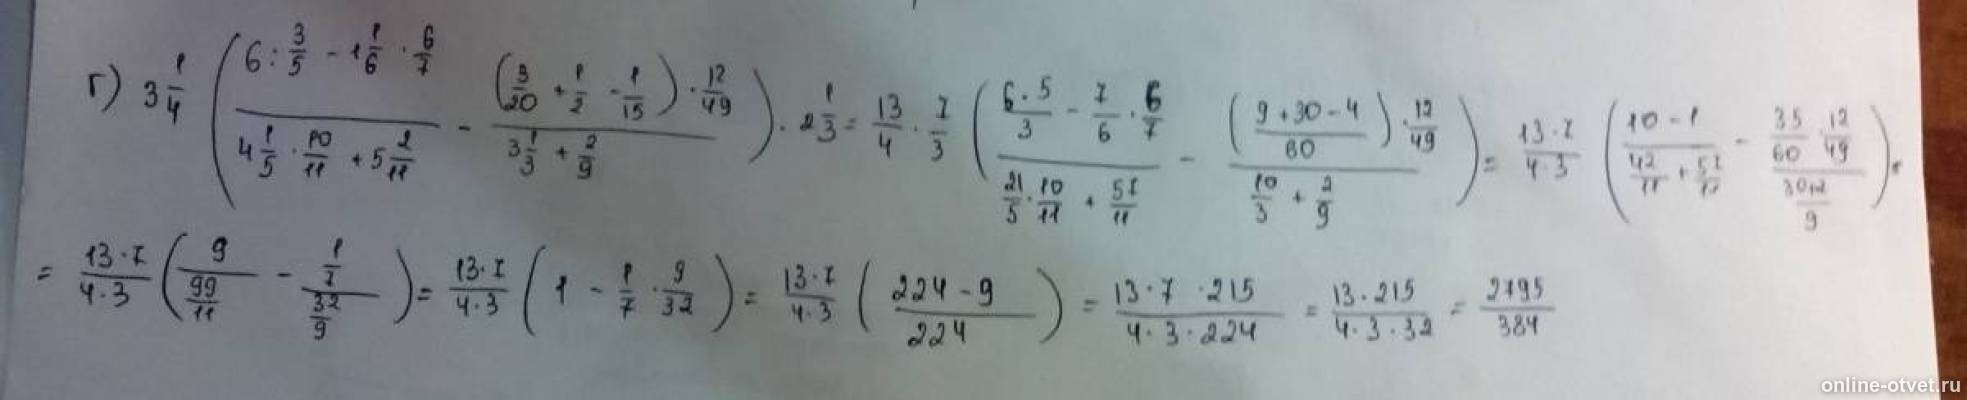 г) 3 1/4 ( (6 : 3/5 - 1 1/6 · 6/7) / (4 1/5 · 10/11 + 5 2/11) - ((3/20 + 1/2 - 1/15) · 12/49) / (3 1/3 + 2/9) ) · 2 1/3 = 13/4 · 7/3 ( ((6·5)/3 - 7/6 · 6/7) / (21/5 · 10/11 + 57/11) - (((9+30-4)/60) · 12/49) / (10/3 + 2/9) ) = (13·7)/(4·3) ( (10-1) / (42/11 + 57/11) - (35/60 · 12/49) / ((30+2)/9) ) =
= (13·7)/(4·3) ( 9 / (99/11) - (1/7) / (32/9) ) = (13·7)/(4·3) ( 1 - 1/7 · 9/32 ) = (13·7)/(4·3) ( (224-9)/224 ) = (13·7·215)/(4·3·224) = (13·215)/(4·3·32) = 2795/384
online-otvet.ru